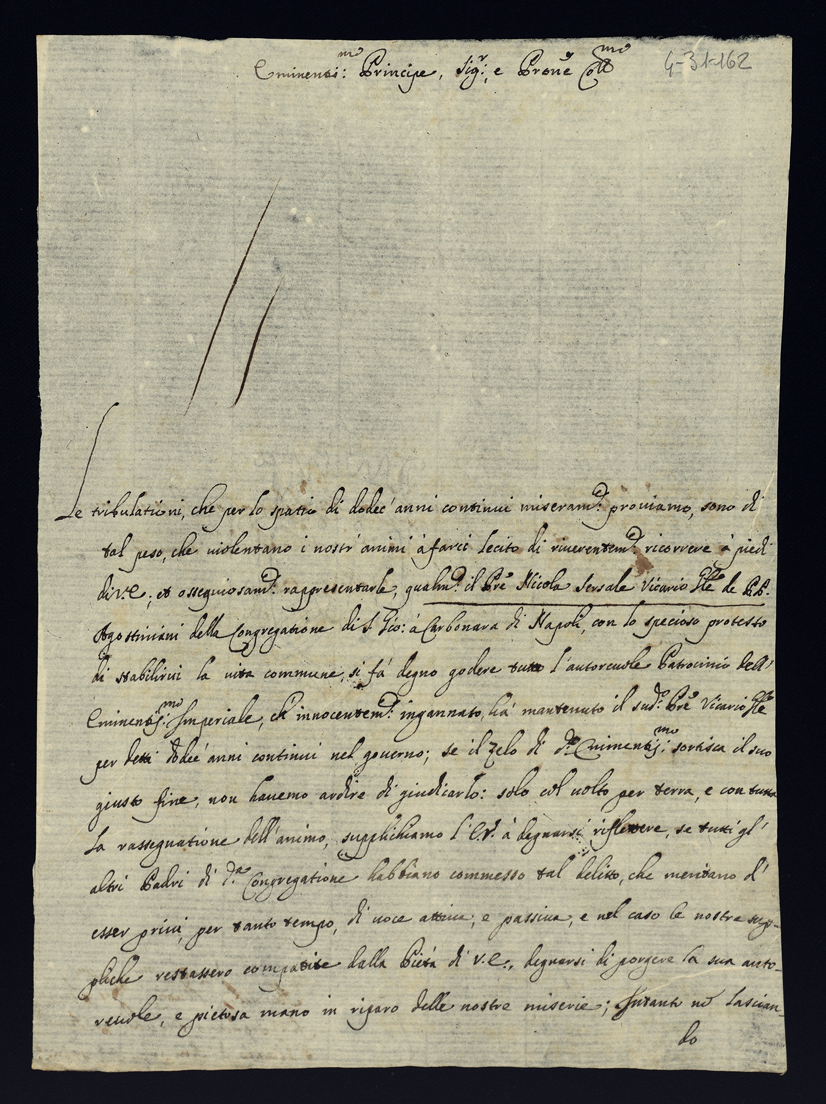 Eminentis:mo Principe, Sigr: e Prone Collmo
4-31-162
Le tribulationi, che per lo spatio di dodec'anni continui miseramte. proviamo, sono di
tal peso, che violentano i nostr'animi à farci lecito di riverentemte. ricorrere à piedi
di V.E; et ossequiosamte. rappresentarle, qualmte. il Pre Nicola Sersale Vicario Gle de PP.
Agostiniani della Congregatione di S. Gio: à Carbonara di Napoli, con lo specioso protesto
di stabilirvi la vita commune, si fà degno godere tutto l'autorevole Patrocinio dell'
Eminentis:mo Imperiale, ch'innocentemte. ingannato, hà mantenuto il sudo. Pre Vicario Gle
per detti dodec'anni continui nel governo; se il zelo di do. Eminentis:mo sortisca il suo
giusto fine, non havemo ardire di giudicarlo: solo col volto per terra, e con tutta
la rassegnatione dell'animo, supplichiamo l'E.V. à degnarsi riflettere, se tutti gl'
altri Padri di da. Congregatione habbiano commesso tal delitto, che meritano d'
esser privi, per tanto tempo, di voce attiva, e passiva, e nel caso le nostre sup-
pliche restassero compatite dalla Pietà di V.E., degnarsi di porgere la sua auto-
revole, e pietosa mano in riparo delle nostre miserie; lascian-
do